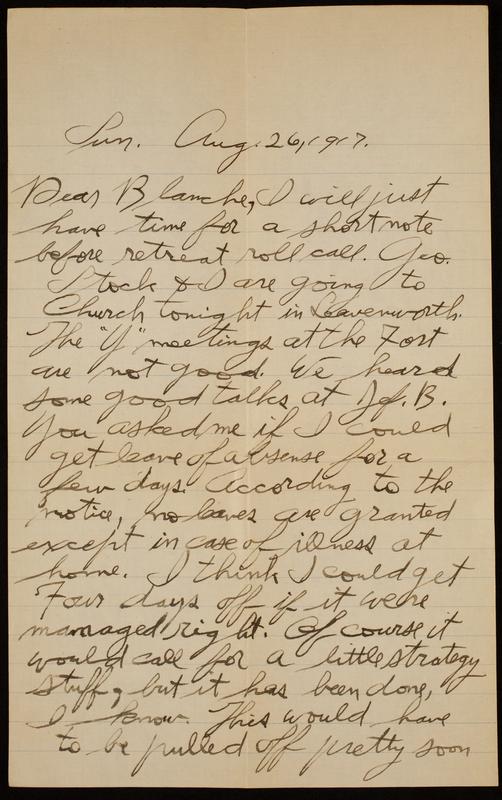 Sun. Aug. 26, 1917.
Dear Blanche, I will just
have time for a short note
before retreat roll call. Geo.
Stock & I are going to
Church tonight in Leavenworth.
The "Y" meetings at the Fort
are not good. We heard
some good talks at Jef. B.
You asked me if I could
get leave of absense for a
few days. According to the
notice, no leaves are granted
except in case of illness at
home. I think I could get
Four days off if it were
managed right. Of course it
would call for a little strategy
stuff, but it has been done,
I know. This would have
to be pulled off pretty soon